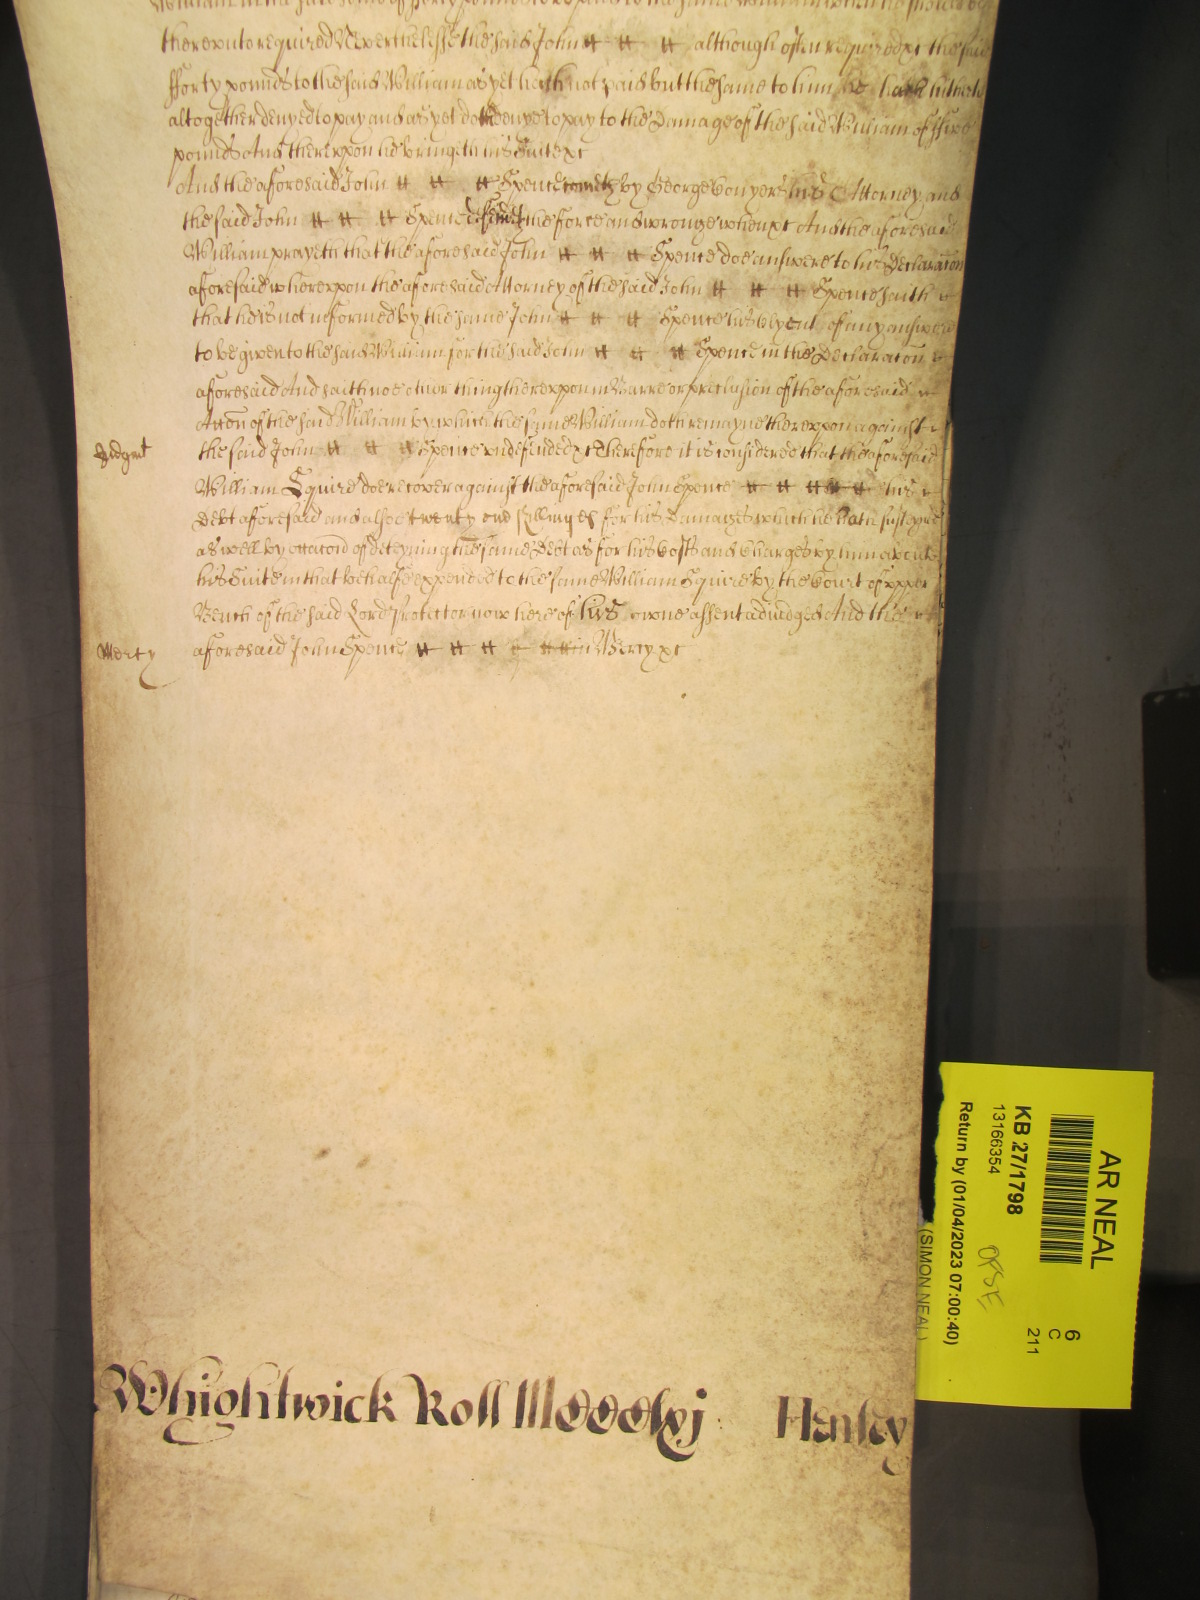 William in the said some of forty pounds to be paid to the same William when he should be
thereunto required Neverthelesse the said John # # # although often required &c the said
fforty pounds to the said William as yet hath not paid but the same to him he hath hitherto
altogether denyed to pay and as yet doth denye to pay to the Damage of the said William of ffive
pounds And thereupon he bringeth his Suite &c
And the aforesaid John # # # Spence cometh by George Conyers his Attorney and
the said John # # # Spence defendeth the force and wronge when &c And the aforesaid
William prayeth that the aforesaid John # # # Spence doe answere to his Declaracon
aforesaid whereupon the aforesaid Attorney of the said John # # # Spence saith
that he is not informed by the same John # # # Spence his Clyent of any answere
to be given to the said William for the said John # # # Spence in the Declaracon
aforesaid And saith noe other thing thereupon in Barre or preclusion of the aforesaid
Accon of the said William by which the same William doth remayne thereupon against
Judgmt the said John # # # Spence undefended &c Therefore it is considered that the aforesaid
William Squire doe recover against the aforesaid John Spence # # # # # his
Debt aforesaid and alsoe twenty one shillinges for his Damages which he hath susteyned
as well by occacon of deteyning the same Debt as for his Costs and Charges by him about
his Suite in that behalfe expended to the same William Squire by the Court of upper
Bench of the said Lord Protector now here of his owne assent adiudged And the
Mercy aforesaid John Spence # # # # # # in Mercy &c
Whightwick Roll Mccclxj Henley
AR NEAL
KB 27/1798
13166354
Return by (01/04/2023 07:00:40)
(SIMON NEAL)
6
C
211